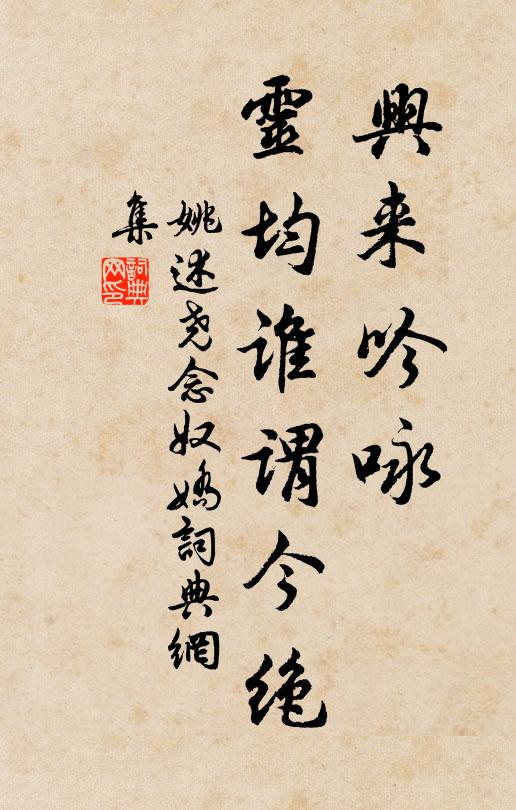 興来吟咏
靈均誰謂今絶
姚述尧念奴嬌詞典網
集
詞典網印